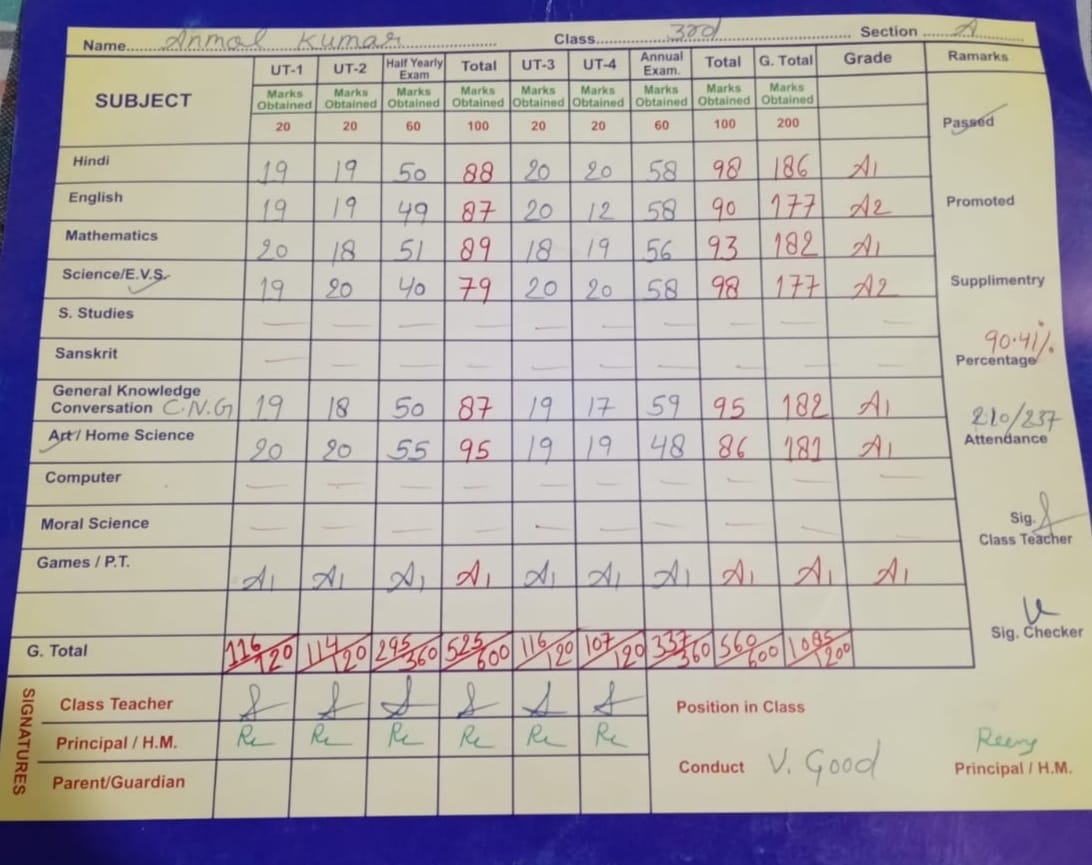 Name..... Anmol Kumar ..... Class..... 3rd ..... Section ..... A .....
SUBJECT UT-1 UT-2 Half Yearly Exam Total UT-3 UT-4 Annual Exam. Total G. Total Grade Ramarks
Marks Obtained Marks Obtained Marks Obtained Marks Obtained Marks Obtained Marks Obtained Marks Obtained Marks Obtained Marks Obtained
20 20 60 100 20 20 60 100 200 Passed
Hindi 19 19 50 88 20 20 58 98 186 A1
English 19 19 49 87 20 12 58 90 177 A2 Promoted
Mathematics 20 18 51 89 18 19 56 93 182 A1
Science/E.V.S. 19 20 40 79 20 20 58 98 177 A2 Supplimentry
S. Studies — — — — — — — — — —
Sanskrit — — — — — — — — — — 90.41% Percentage
General Knowledge
Conversation C.N.G 19 18 50 87 19 17 59 95 182 A1 210/237
Art / Home Science 20 20 55 95 19 19 48 86 181 A1 Attendance
Computer — — — — — — — — — —
Moral Science — — — — — — — — — — Sig. Class Teacher
Games / P.T. A1 A1 A1 A1 A1 A1 A1 A1 A1 A1
G. Total 116/120 114/120 295/360 525/600 116/120 107/120 337/360 560/600 1085/1200 Sig. Checker
SIGNATURES
Class Teacher Position in Class
Principal / H.M. Conduct V. Good Principal / H.M.
Parent/Guardian